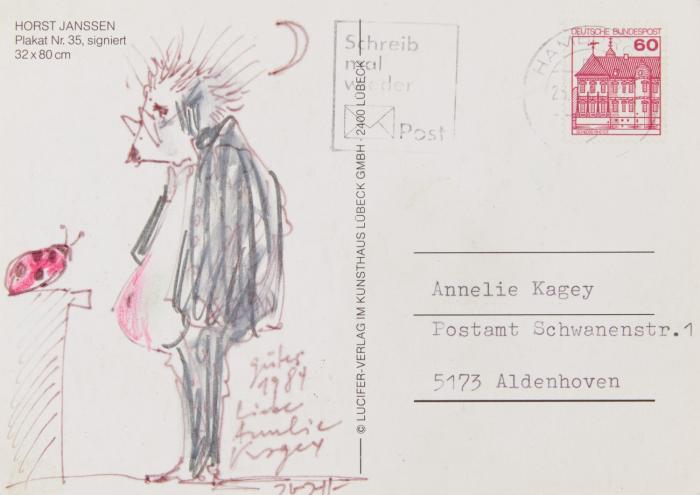 HORST JANSSEN
Plakat Nr. 35, signiert
32 x 80 cm
Schreib
mal
wieder
Post
DEUTSCHE BUNDESPOST
60
© LUCIFER-VERLAG IM KUNSTHAUS LÜBECK GMBH · 2400 LÜBECK
Annelie Kagey
Postamt Schwanenstr.1
5173 Aldenhoven
gutes
1984
Liebe
Annelie
Kagey